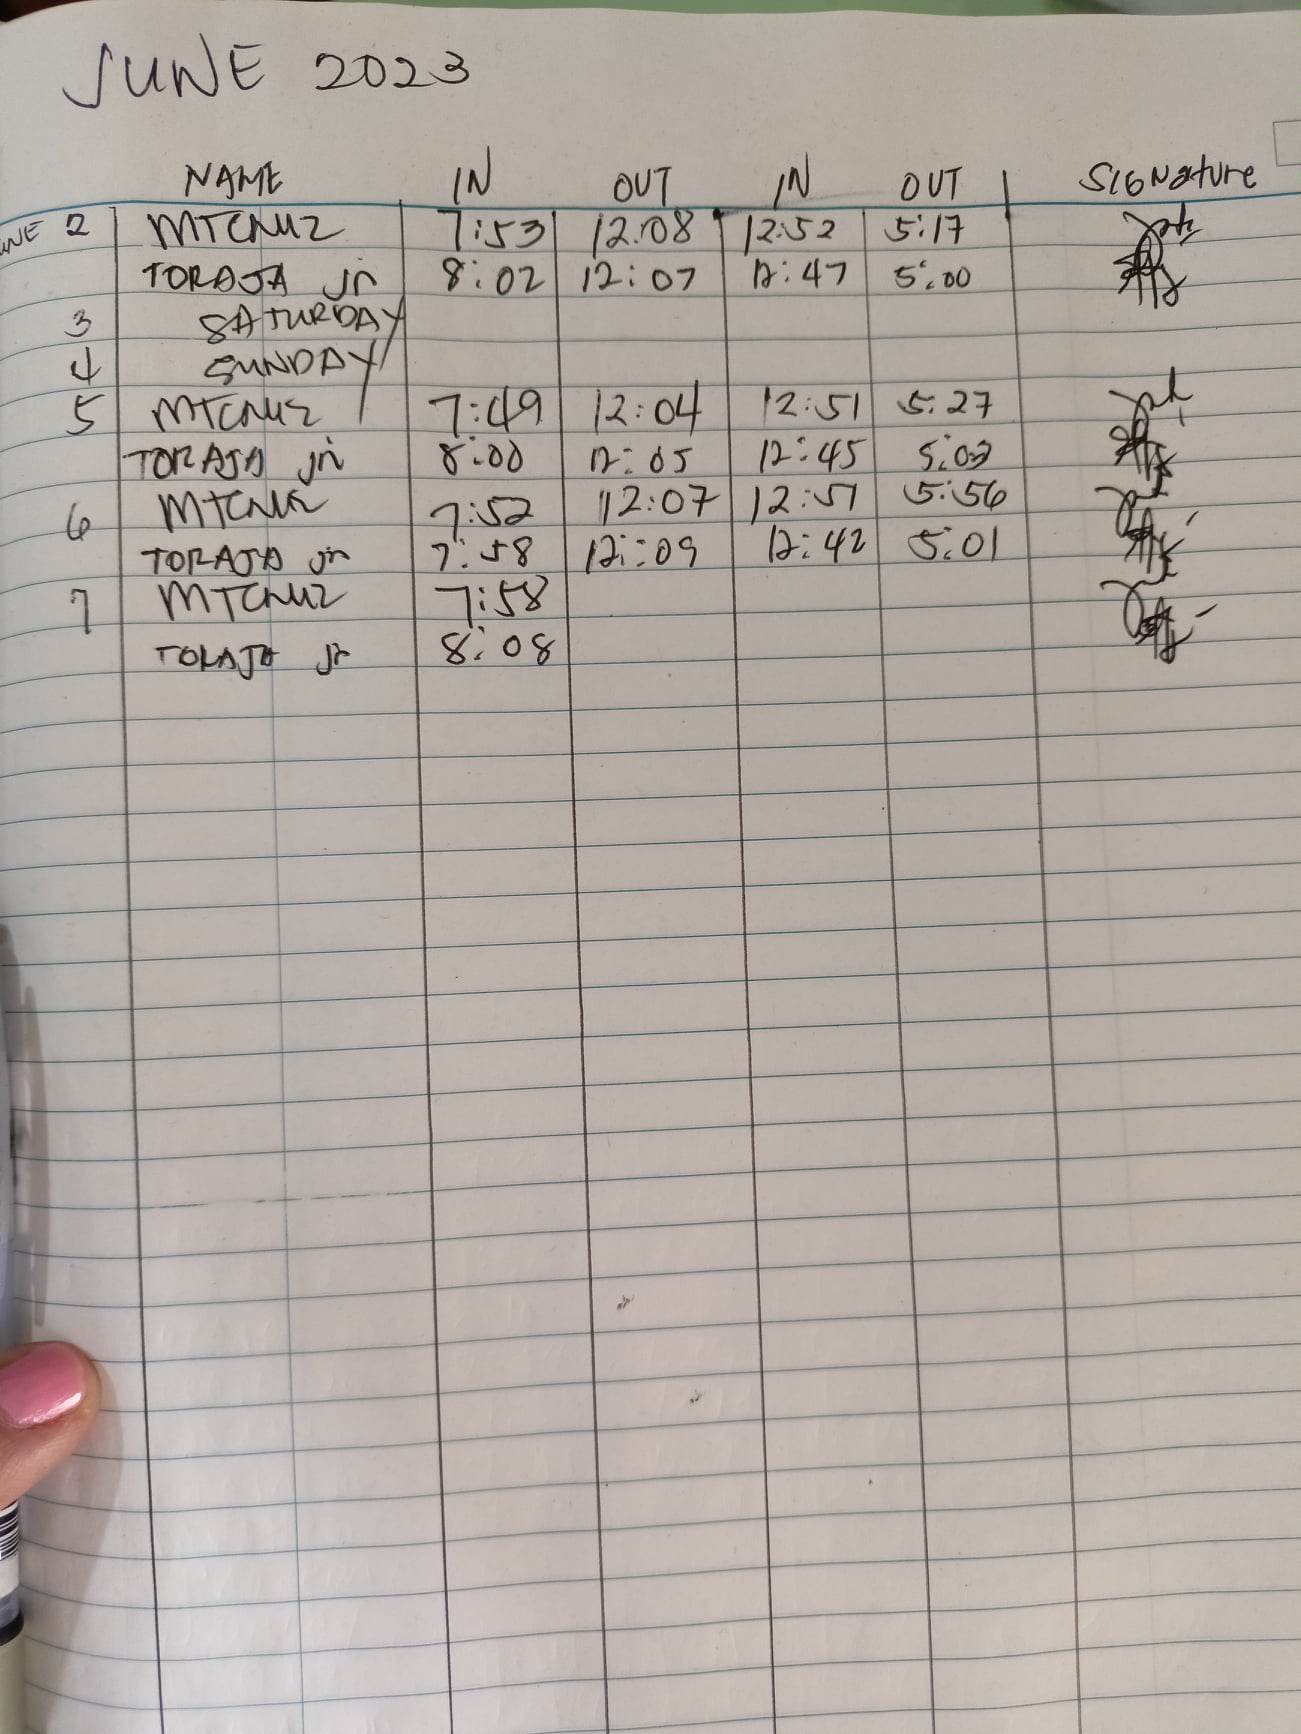 JUNE 2023
NAME IN OUT IN OUT SIGNature
2 MTCNUZ 7:53 12:08 12:52 5:17
TORAJA jr 8:02 12:07 12:47 5:00
3 SATURDAY
4 SUNDAY
5 MTCNUZ 7:49 12:04 12:51 5:27
TORAJA jr 8:00 12:05 12:45 5:03
6 MTCNUZ 7:52 12:07 12:51 5:56
TORAJA jr 7:58 12:09 12:42 5:01
7 MTCNUZ 7:58
TORAJA jr 8:08